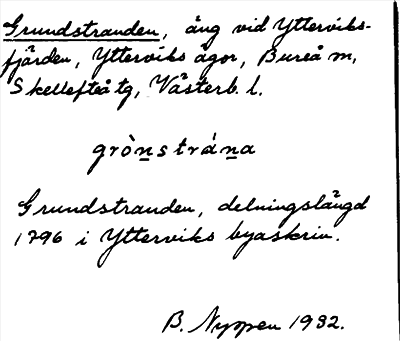 Grundstranden, äng vid Ytterviks-
fjärden, Ytterviks ägor, Bureå m,
Skellefteå tg, Västerb. l.
gròn̲strán̲a
Grundstranden, delningslängd
1796 i Ytterviks byaskrin.
B. Nyppen 1932.